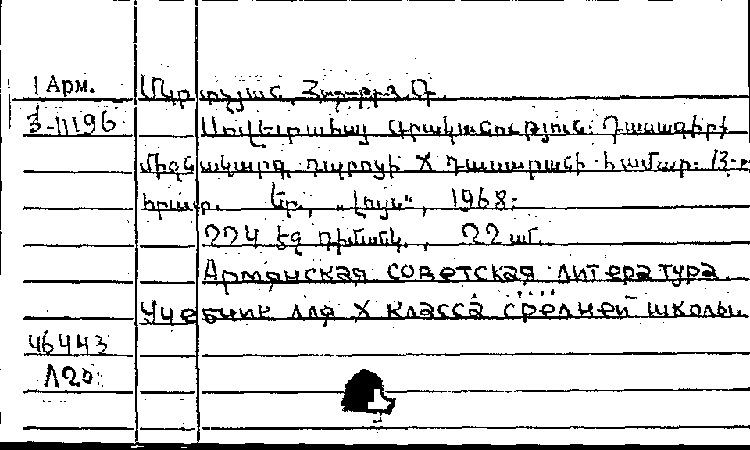 1 Арм.
3-11196
Սովետահայ գրականություն: Դասագիրք
միջնակարգ դպրոցի X դասարանի համար: 13-
հրատ. Եր., „Լույս", 1968:
224 էջ դիմանկ., 22 սմ.
Армянская советская литература.
Учебник для X класса средней школы.
46443